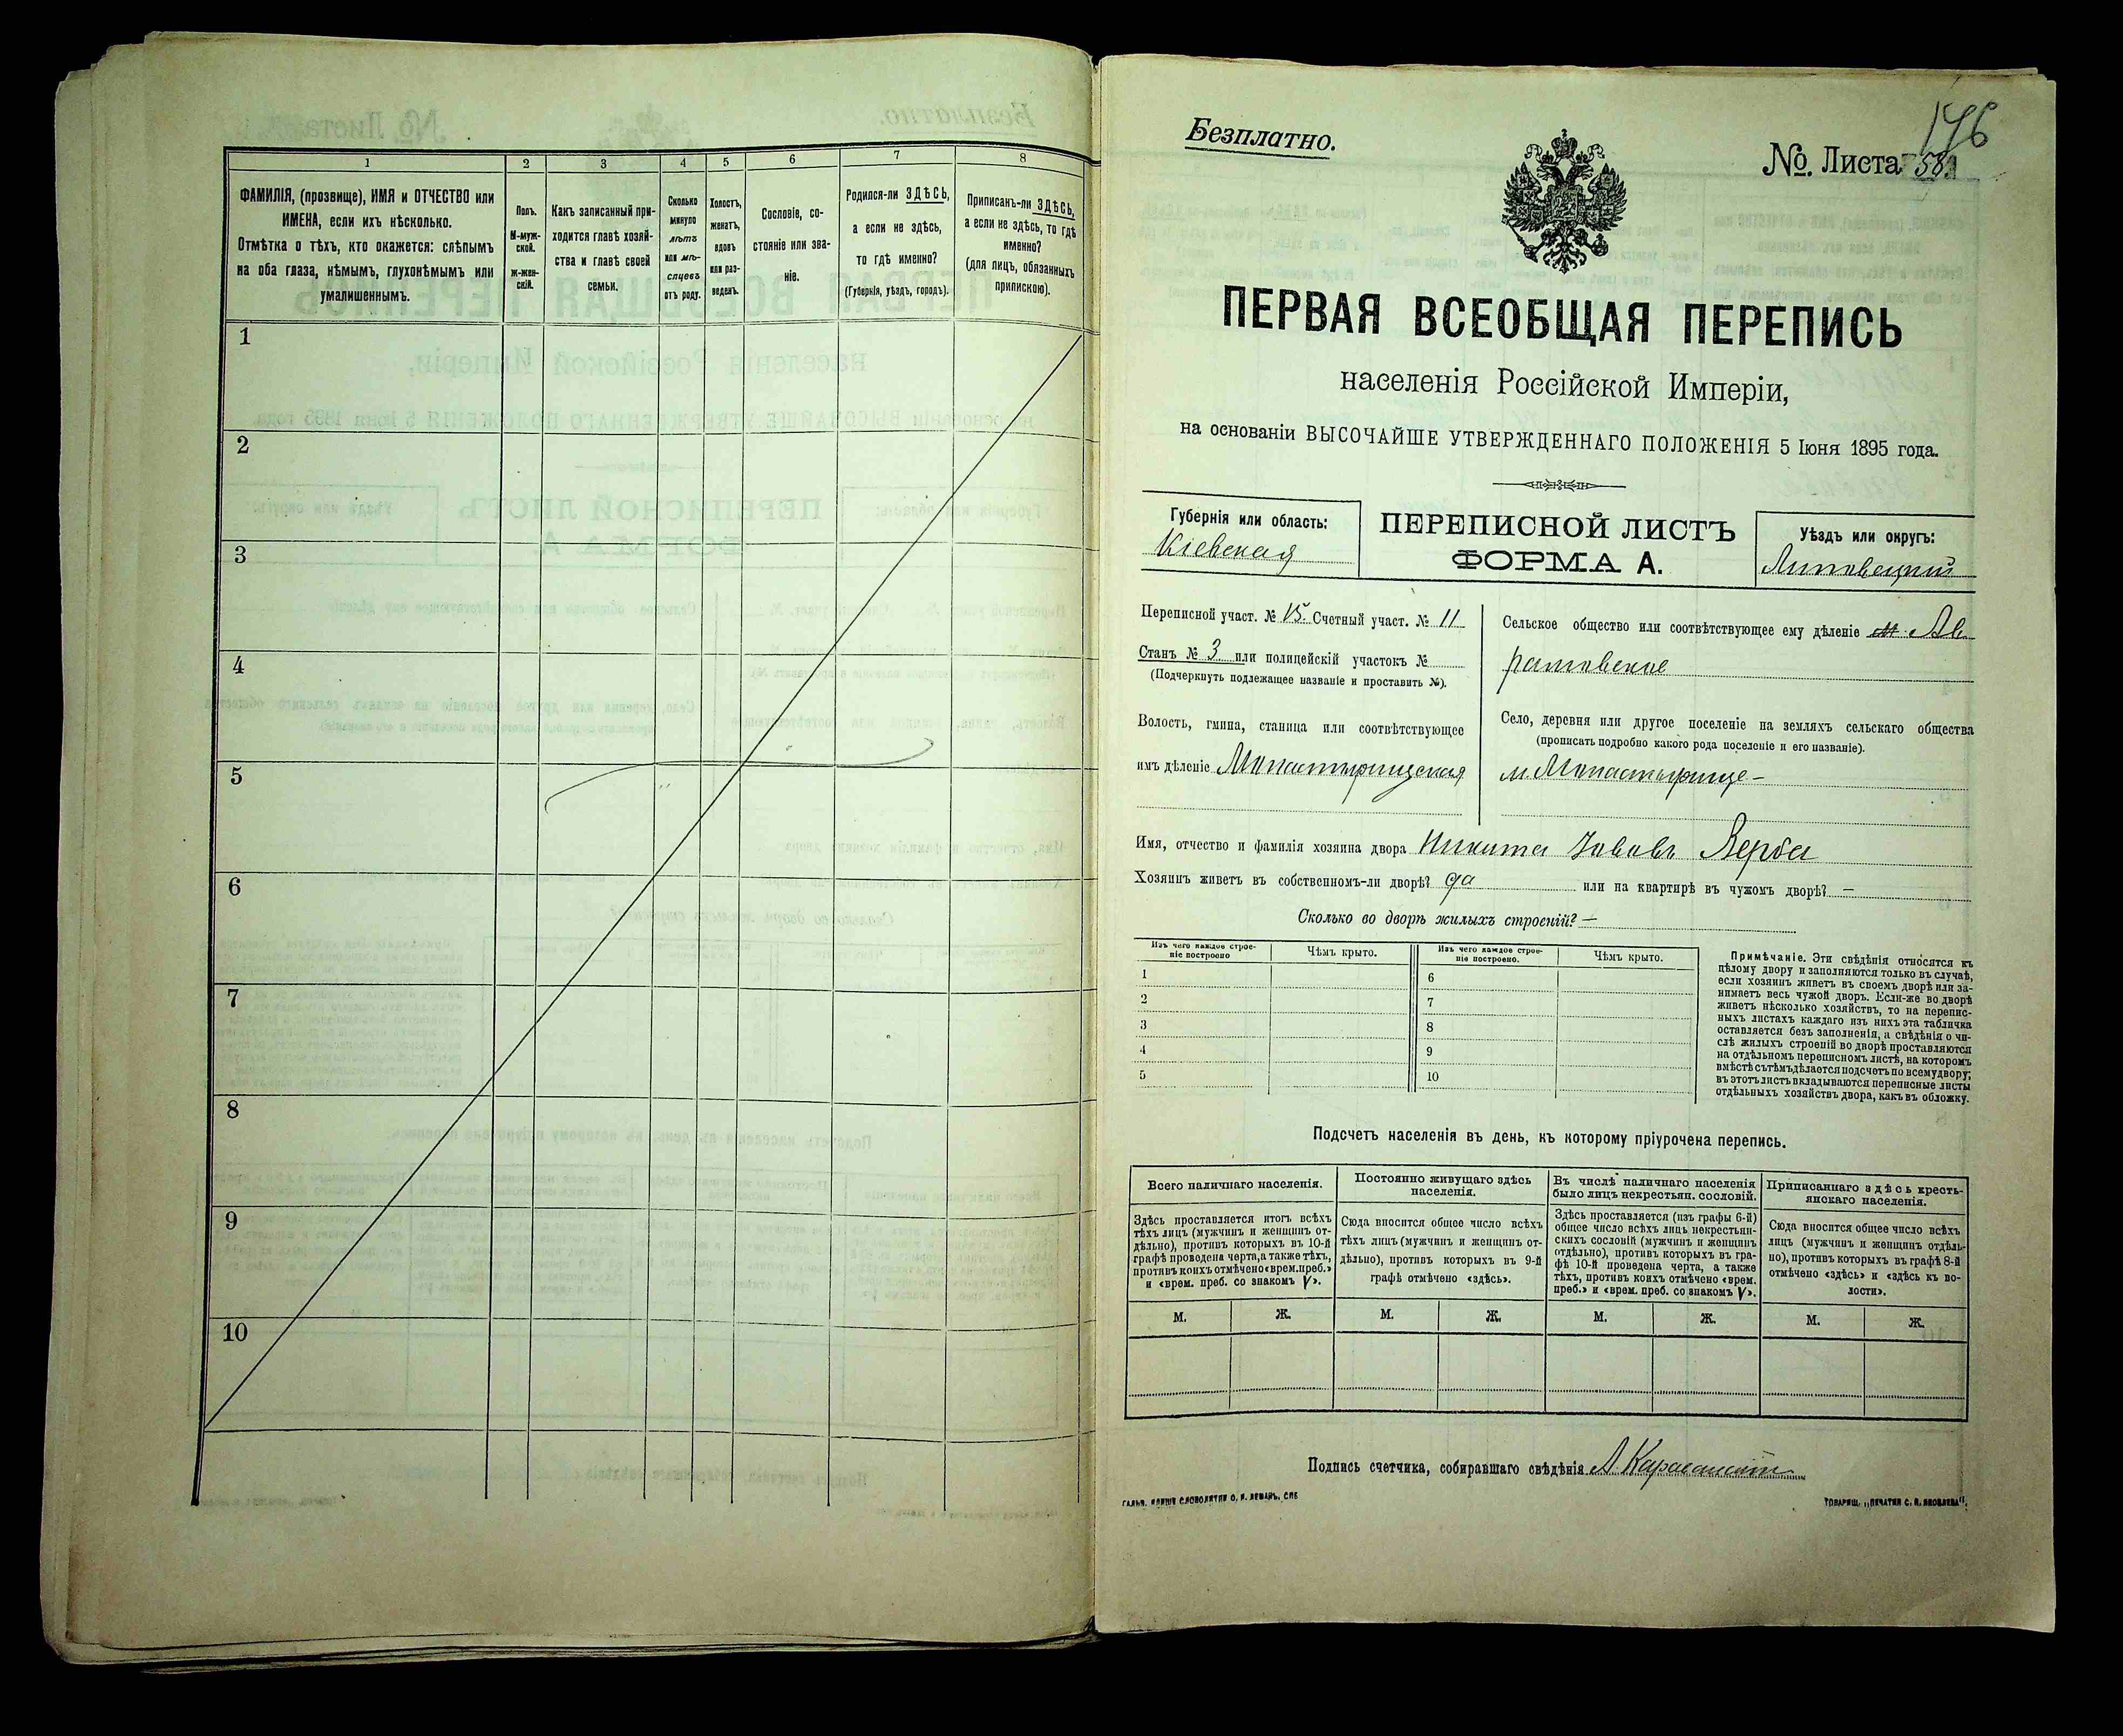 1
2
3
4
5
6
7
8
ФАМИЛІЯ, (прозвище), ИМЯ и ОТЧЕСТВО или
ИМЕНА, если ихъ нѣсколько.
Отмѣтка о тѣхъ, кто окажется: слѣпымъ
на оба глаза, нѣмымъ, глухонѣмымъ или
умалишеннымъ.
Полъ.
М-муж-
ской.
Ж-жен-
скій.
Какъ записанный при-
ходится главѣ хозяй-
ства и главѣ своей
семьи.
Сколько
минуло
лѣтъ
или мѣ-
сяцевъ
отъ роду.
Холостъ,
женатъ,
вдовъ
или раз-
веденъ.
Сословіе, со-
стояніе или зва-
ніе.
Родился-ли ЗДѢСЬ,
а если не здѣсь,
то гдѣ именно?
(Губернія, уѣздъ, городъ).
Приписанъ-ли ЗДѢСЬ,
а если не здѣсь, то гдѣ
именно?
(для лицъ, обязанныхъ
припискою).
1
2
3
4
5
6
7
8
9
10
146
Безплатно.
№. Листа 58.
ПЕРВАЯ ВСЕОБЩАЯ ПЕРЕПИСЬ
населенія Россійской Имперіи,
на основаніи ВЫСОЧАЙШЕ УТВЕРЖДЕННАГО ПОЛОЖЕНІЯ 5 Іюня 1895 года.
Губернія или область:
Кіевская
ПЕРЕПИСНОЙ ЛИСТЪ
ФОРМА А.
Уѣздъ или округъ:
Липовецкій
Переписной участ. № 15. Счетный участ. № 11
Станъ № 3 или полицейскій участокъ №
(Подчеркнуть подлежащее названіе и проставить №).
Волость, гмина, станица или соотвѣтствующее
имъ дѣленіе Монастырищская
Сельское общество или соотвѣтствующее ему дѣленіе Ав
ратовское
Село, деревня или другое поселеніе на земляхъ сельскаго общества
(прописать подробно какого рода поселеніе и его названіе).
м. Монастырище -
Имя, отчество и фамилія хозяина двора Никита Іововъ Верба
Хозяинъ живетъ въ собственномъ-ли дворѣ? да или на квартирѣ въ чужомъ дворѣ? —
Сколько во дворѣ жилыхъ строеній? —
Изъ чего каждое строе-
ніе построено
Чѣмъ крыто.
Изъ чего каждое строе-
ніе построено.
Чѣмъ крыто.
1
2
3
4
5
6
7
8
9
10
Примѣчаніе. Эти свѣдѣнія относятся къ
цѣлому двору и заполняются только въ случаѣ,
если хозяинъ живетъ въ своемъ дворѣ или за-
нимаетъ весь чужой дворъ. Если-же во дворѣ
живетъ нѣсколько хозяйствъ, то на перепис-
ныхъ листахъ каждаго изъ нихъ эта табличка
оставляется безъ заполненія, а свѣдѣнія о чи-
слѣ жилыхъ строеній во дворѣ проставляются
на отдѣльномъ переписномъ листѣ, на которомъ
вмѣстѣ съ тѣмъ дѣлается подсчетъ по всему двору;
въ этотъ листъ вкладываются переписные листы
отдѣльныхъ хозяйствъ двора, какъ въ обложку.
Подсчетъ населенія въ день, къ которому пріурочена перепись.
Всего наличнаго населенія.
Здѣсь проставляется итогъ всѣхъ
тѣхъ лицъ (мужчинъ и женщинъ от-
дѣльно), противъ которыхъ въ 10-й
графѣ проведена черта, а также тѣхъ,
противъ коихъ отмѣчено «врем. преб.»
и «врем. преб. со знакомъ V».
Постоянно живущаго здѣсь
населенія.
Сюда вносится общее число всѣхъ
тѣхъ лицъ (мужчинъ и женщинъ от-
дѣльно), противъ которыхъ въ 9-й
графѣ отмѣчено «здѣсь».
Въ числѣ наличнаго населенія
было лицъ некрестьян. сословій.
Здѣсь проставляется (изъ графы 6-й)
общее число всѣхъ лицъ некрестьян-
скихъ сословій (мужчинъ и женщинъ
отдѣльно), противъ которыхъ въ гра-
фѣ 10-й проведена черта, а также
тѣхъ, противъ коихъ отмѣчено «врем.
преб.» и «врем. преб. со знакомъ V».
Приписаннаго здѣсь кресть-
янскаго населенія.
Сюда вносится общее число всѣхъ
лицъ (мужчинъ и женщинъ отдѣль-
но), противъ которыхъ въ графѣ 8-й
отмѣчено «здѣсь» и «здѣсь къ во-
лости».
М. Ж. М. Ж. М. Ж. М. Ж.
Подпись счетчика, собиравшаго свѣдѣнія
ГАЛЬВ. КЛИШЕ СЛОВОЛИТНИ О. И. ЛЕМАНЪ, СПБ
ТОВАРИЩ. „ПЕЧАТНИ С. П. ЯКОВЛЕВА".